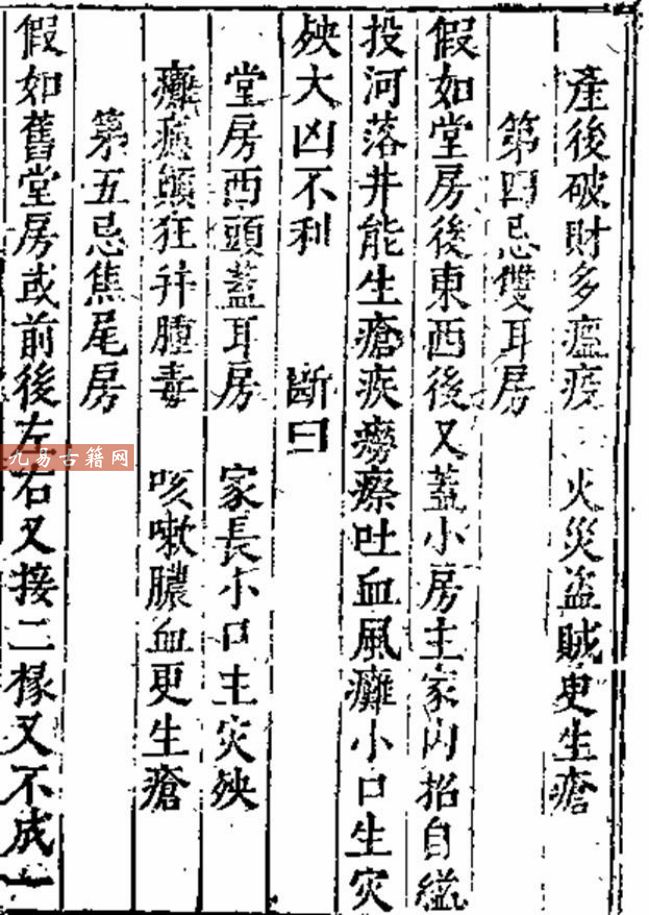 產後破財多瘟疫 火災盜賊更生瘡
第四忌雙耳房
假如堂房後東西後又蓋小房主家內招自縊
投河落井能生瘡疾癆瘵吐血風癱小口生灾
殃大凶不利 斷曰
堂房西頭蓋耳房 家長小口主灾殃
癱 顛狂并腫毒 咳嗽膿血更生瘡
第五忌焦尾房
假如舊堂房或前後左右又接二椽又不成一
九易古籍网